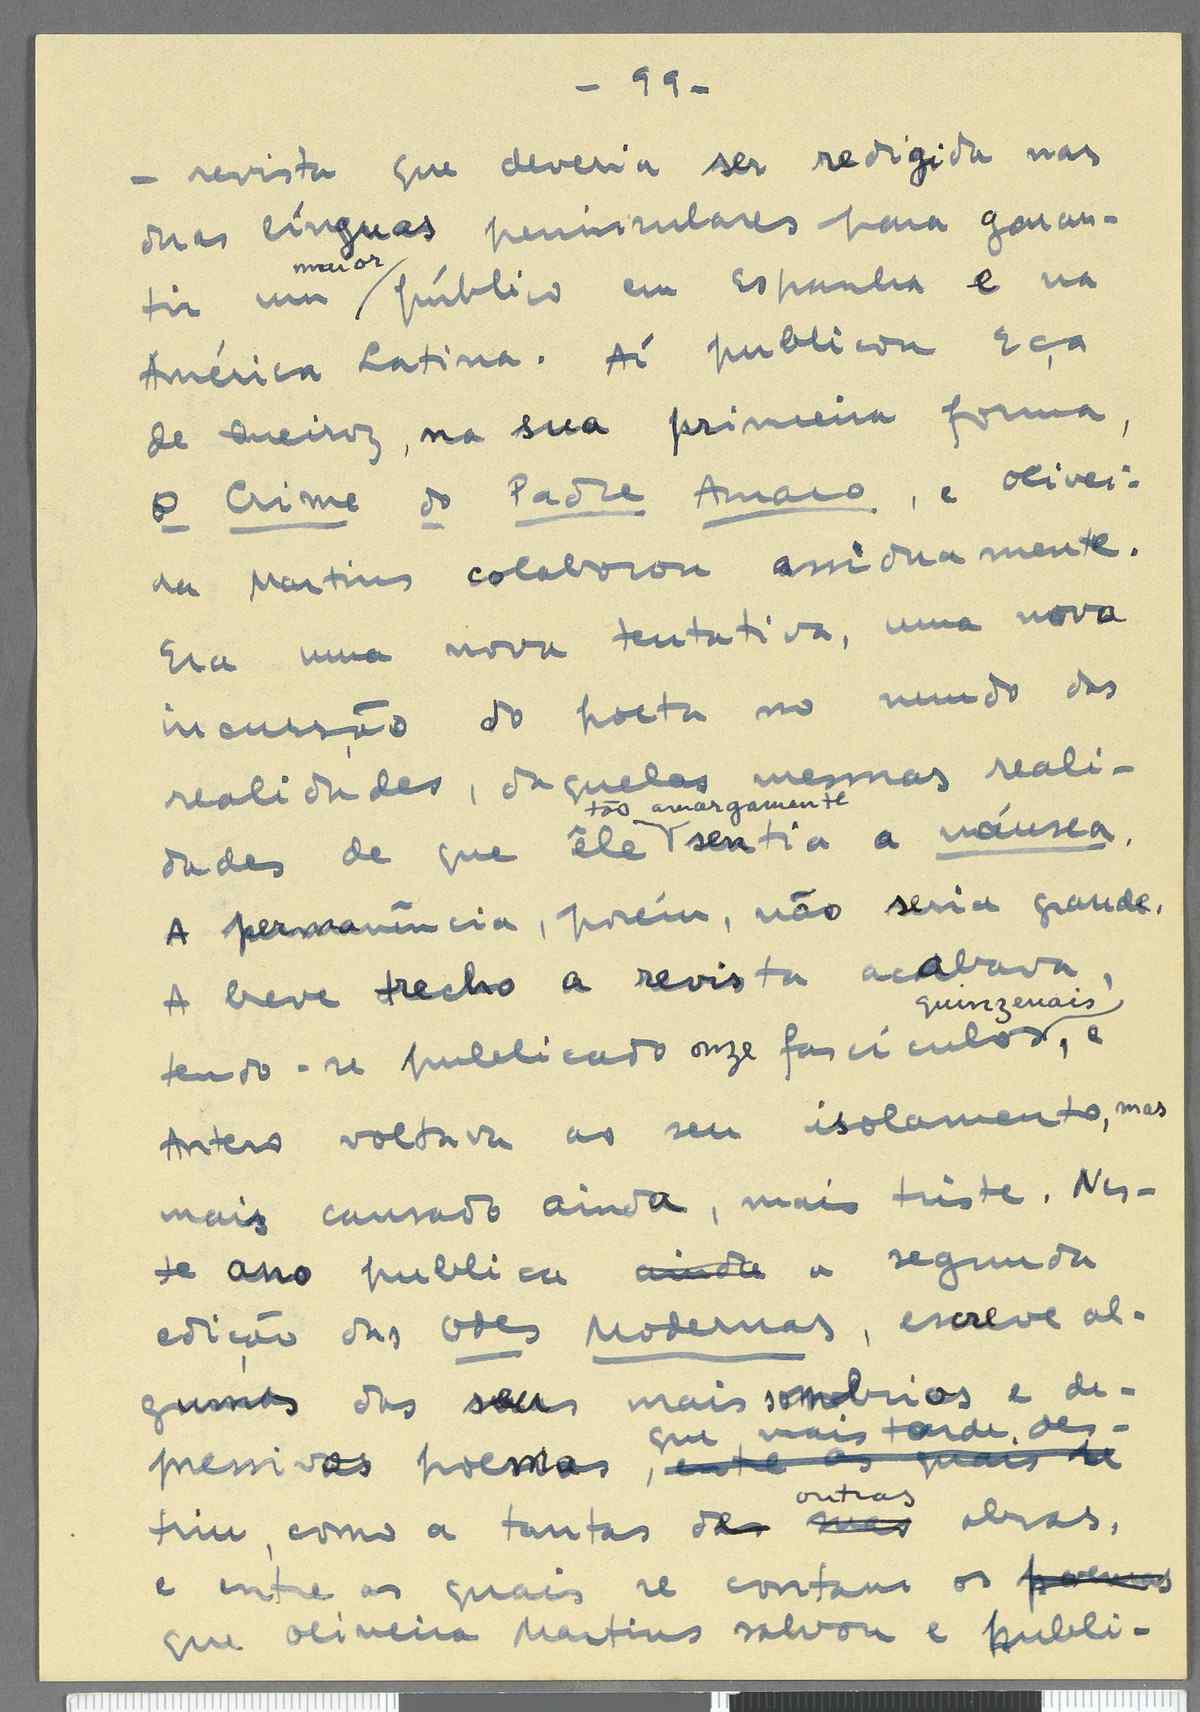 - 99 -
- revista que deveria ser redigida nas
duas línguas peninsulares para garan-
maior
tir um público em Espanha e na
América Latina. Aí publicou Eça
de Queiroz, na sua primeira forma,
O Crime do Padre Amaro, e Olivei-
ra Martins colaborou assiduamente.
Era uma nova tentativa, uma nova
incursão do poeta no mundo das
realidades, daquelas mesmas reali-
tão amargamente
dades de que êle sentia a náusea.
A permanência, porém, não seria grande.
A breve trecho a revista acabava,
quinzenais,
tendo-se publicado onze fascículos, e
Antero voltava ao seu isolamento, mas
mais cansado ainda, mais triste. Nes-
te ano publica ainda a segunda
edição das Odes Modernas, escreve al-
gumas das seus mais sombrios e de-
que mais tarde des-
pressivos poemas, entre os quais se
outras
triu, como a tantas das suas obras,
e entre os quais se contam os poemas
que Oliveira Martins salvou e publi-